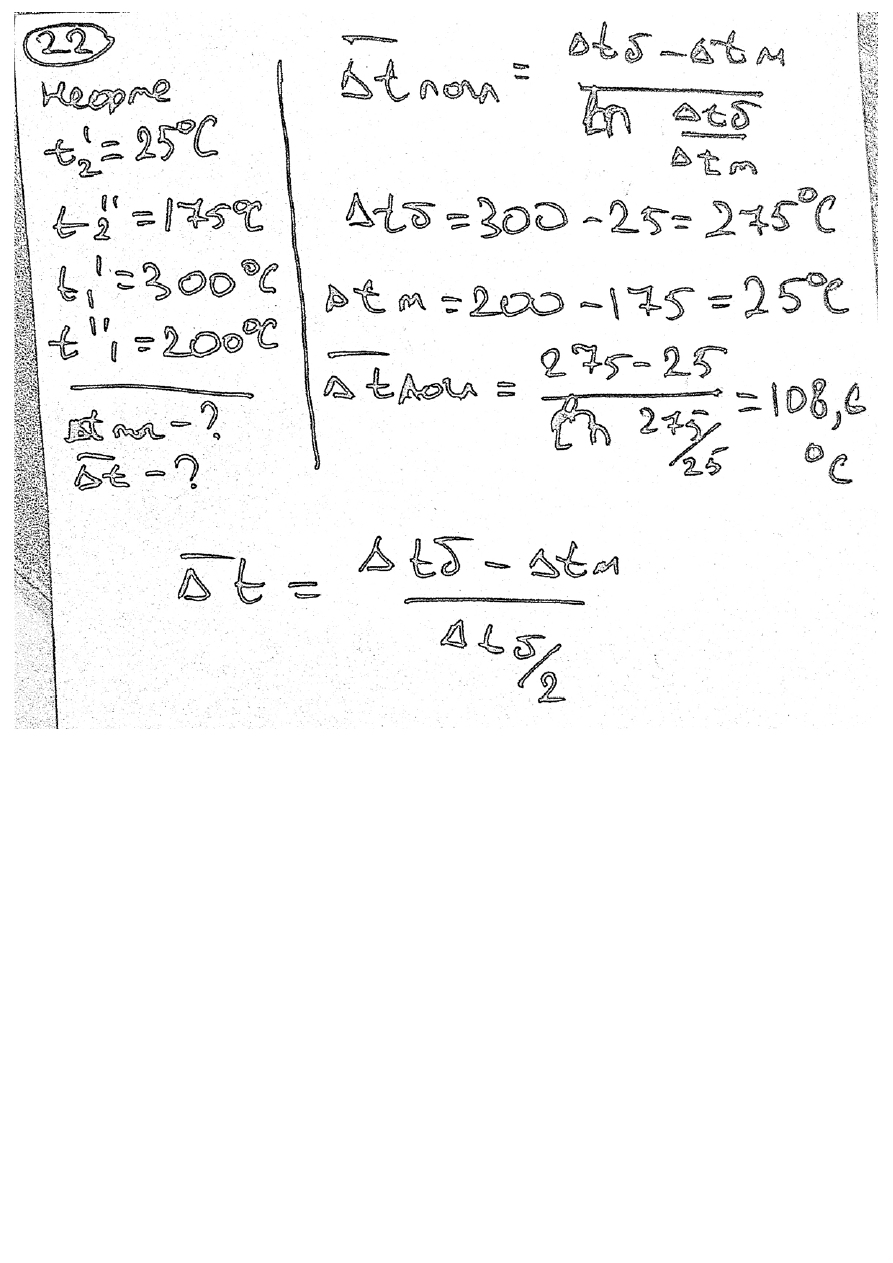 22
t₂' = 25°C
t₂'' = 175°C
t₁' = 300°C
t''₁ = 200°C
Δt - ?
Δt̅ - ?
Δt̅ = (Δtб - Δtм) / (ln Δtб/Δtм)
Δtб = 300 - 25 = 275°C
Δtм = 200 - 175 = 25°C
Δt̅ = (275 - 25) / (ln 275/25) = 108,6 °C
Δt̅ = (Δtб - Δtм) / (Δtб/2)